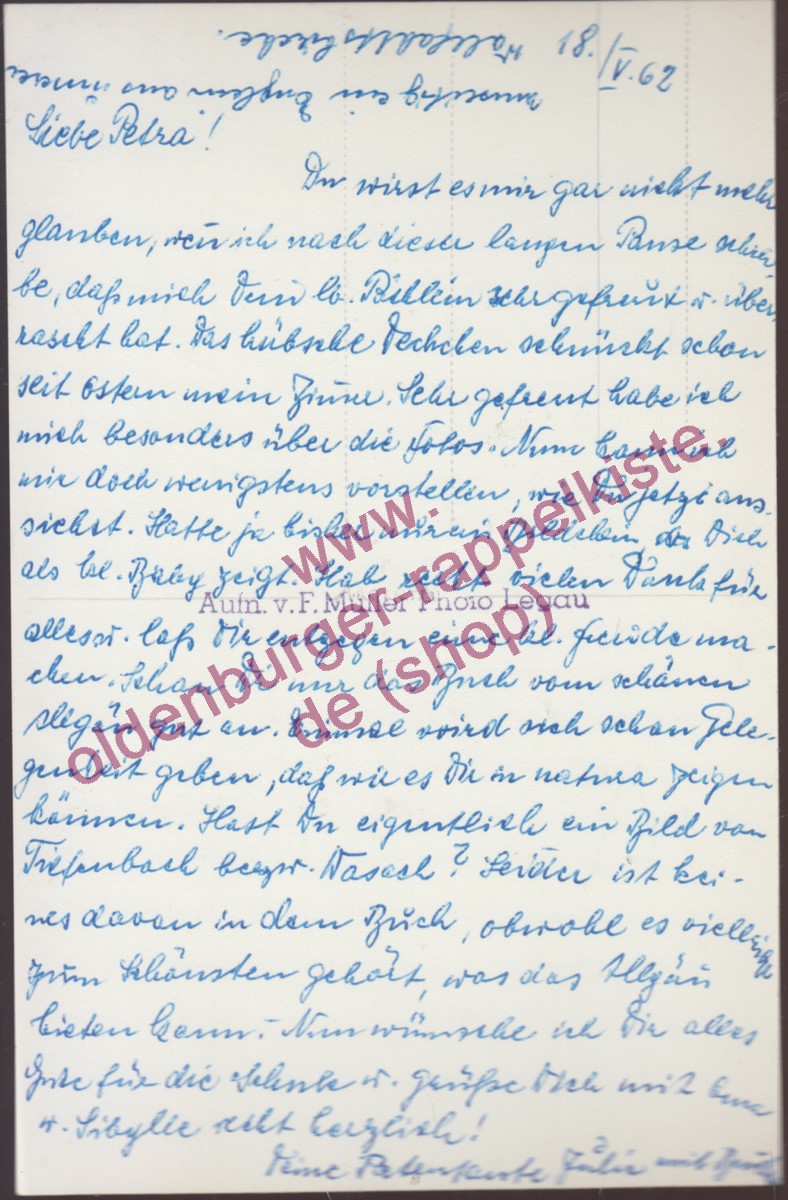 18./V.62
umseitig ein Englein aus unserer
Wallfahrtskirche.
Liebe Petra!
Du wirst es mir gar nicht mehr
glauben, weñ ich nach dieser langen Pause schrei-
be, daß mich Dein lb. Päcklein sehr gefreut u. über-
rascht hat. Das hübsche Deckchen schmückt schon
seit Ostern mein Zim̄er. Sehr gefreut habe ich
mich besonders über die Fotos. Nun kann ich
mir doch wenigstens vorstellen, wie Du jetzt aus-
siehst. Hatte ja bisher nur ein Bildchen, das Dich
als kl. Baby zeigt. Hab recht vielen Dank für
Aufn. v. F. Müller Photo Legau
alles u. laß Dir entgegen eine kl. Freude ma-
chen. Schau Dir nur das Buch vom schönen
Allgäu gut an. Einmal wird sich schon Gele-
genheit geben, daß wir es Dir in natura zeigen
können. Hast Du eigentlich ein Bild von
Tiefenbach bezw. Wasach? Leider ist kei-
nes davon in dem Buch, obwohl es vielleicht
zum Schönsten gehört, was das Allgäu
bieten kann. - Nun wünsche ich Dir alles
Gute für die Schule u. grüße Dich mit
u. Sibylle recht herzlich!
Deine Patentante Julie mit
www.
oldenburger-rappelkiste.
de (shop)